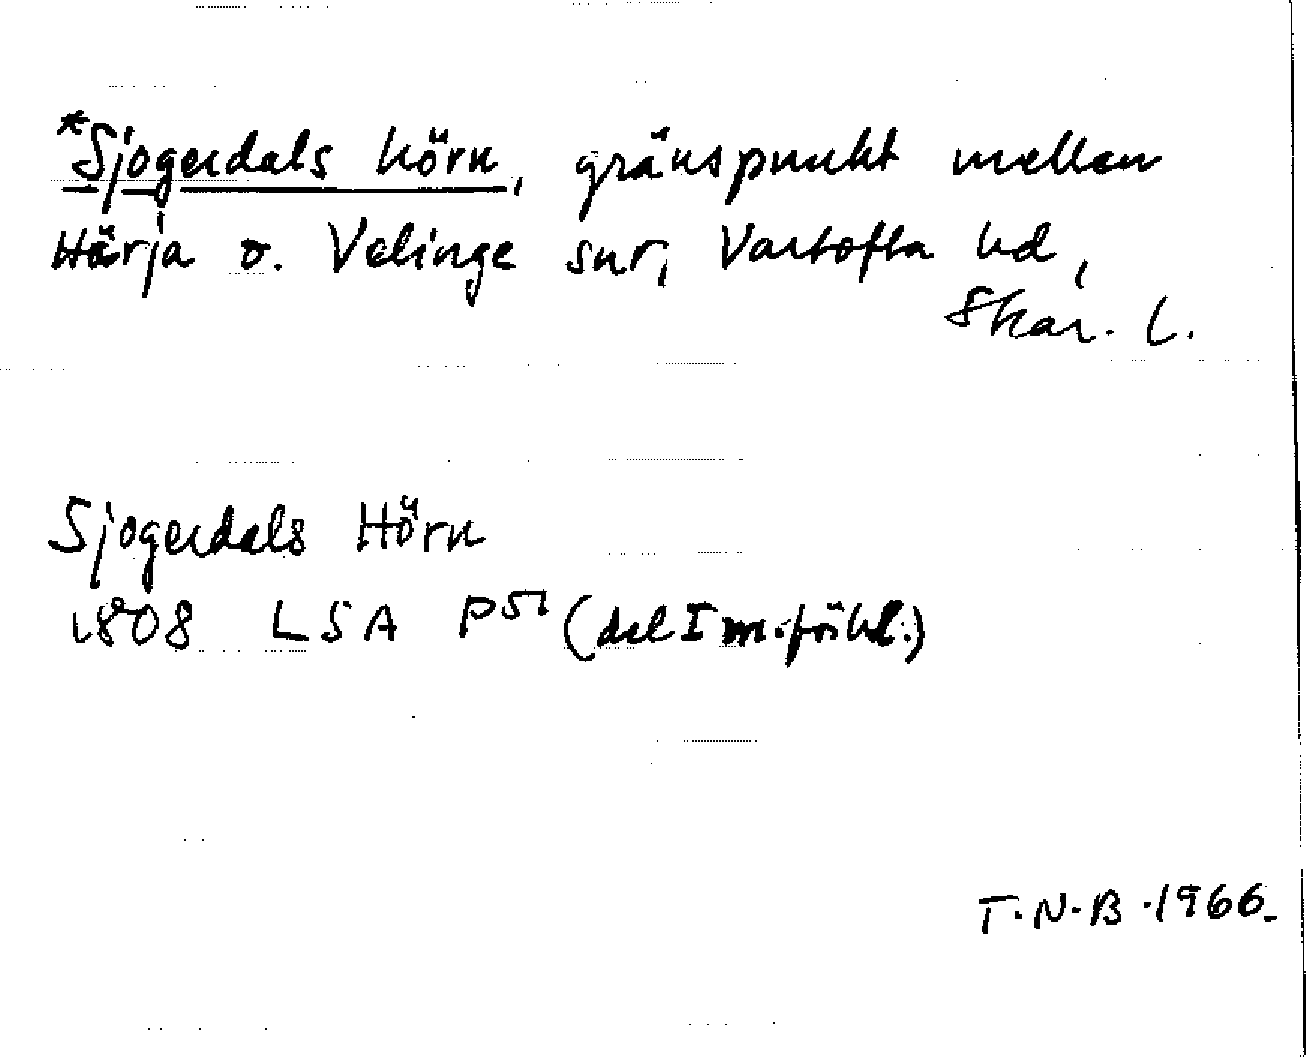 *Sjogerdals hörn, gränspunkt mellan
Härja o. Velinge snr, Vartofta hd,
Skar. l.
Sjogerdals Hörn
1808 LSA P51 (del I m. förhl.)
T.N.B. 1966.